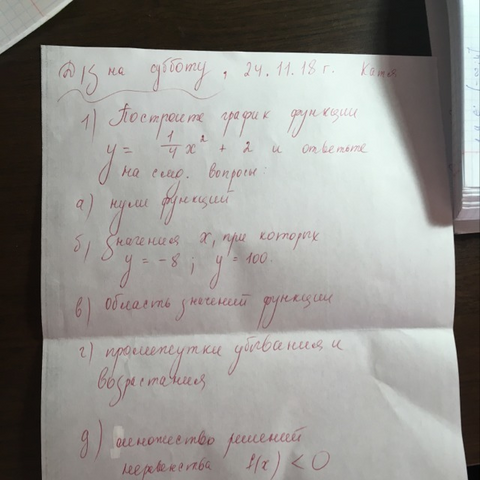 Д/З на субботу, 24.11.18 г. Катя
1) Постройте график функции
y = 1/4 x² + 2 и ответьте
на след. вопросы:
а) нули функции
б) Значения x, при которых
y = -8; y = 100.
в) область значений функции
г) промежутки убывания и
возрастания
д) множество решений
неравенства f(x) < 0